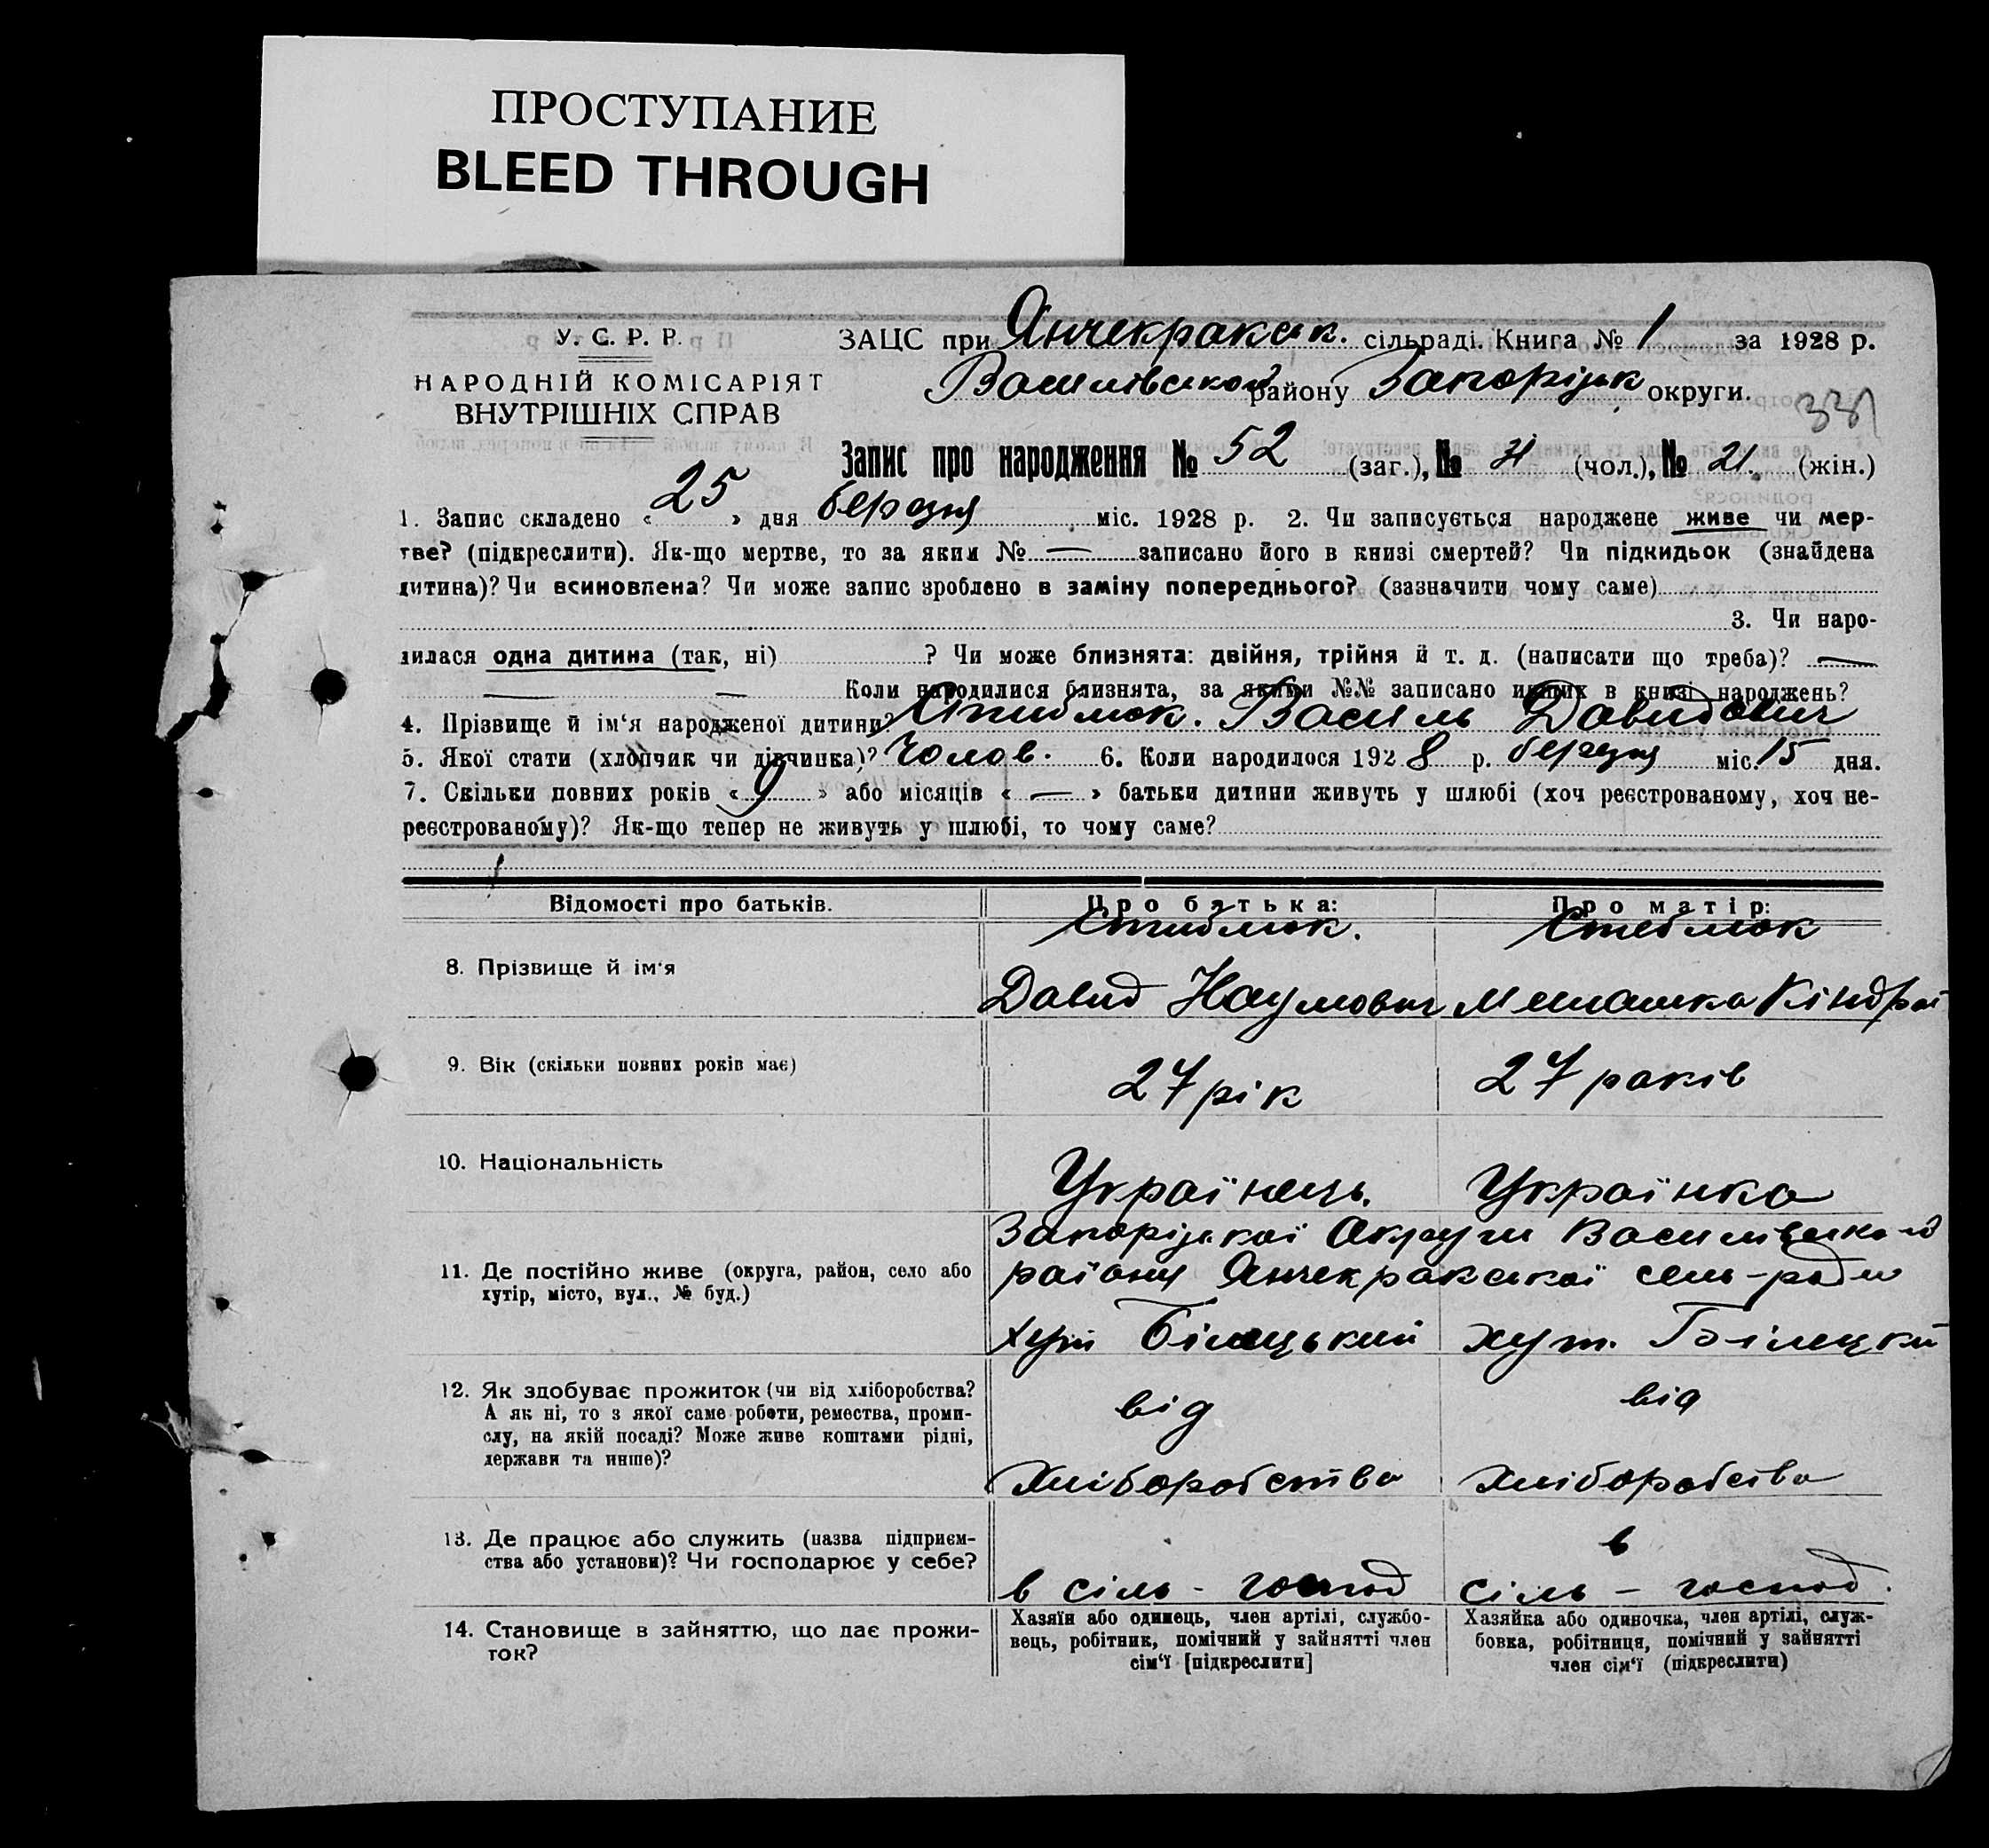 ПРОСТУПАНИЕ
BLEED THROUGH
У. С. Р. Р.
НАРОДНІЙ КОМІСАРІЯТ
ВНУТРІШНІХ СПРАВ
ЗАЦС при Янчекракск. сільраді. Книга № 1 за 1928 р.
Василівського району Запоріжк округи.
331
Запис про народження № 52 (заг.), № 31 (чол.), № 21. (жін.)
1. Запис складено « 25 » дня березня міс. 1928 р. 2. Чи записується народжене живе чи мер-
тве? (підкреслити). Як-що мертве, то за яким № — записано його в книзі смертей? Чи підкидьок (знайдена
дитина)? Чи всиновлена? Чи може запис зроблено в заміну попереднього? (зазначити чому саме)
3. Чи наро-
дилася одна дитина (так, ні) ? Чи може близнята: двійня, трійня й т. д. (написати що треба)? —
— — Коли народилися близнята, за якими №№ записано инших в книзі народжень?
4. Прізвище й ім‘я народженої дитини? Стиблюк. Василь Давидович
5. Якої стати (хлопчик чи дівчинка)? Чолов. 6. Коли народилося 1928 р. березня міс. 15 дня.
7. Скільки повних років « 9 » або місяців « — » батьки дитини живуть у шлюбі (хоч реєстрованому, хоч не-
реєстрованому)? Як-що тепер не живуть у шлюбі, то чому саме?
Відомості про батьків. Про батька: Про матір:
Стиблюк. Стеблюк
8. Прізвище й ім‘я
Давид Наумович Мелашка Кіндрат
9. Вік (скільки повних років має)
27 рік 27 раків
10. Національність
Українець. Українка
Запоріжкої Округи Василівського
11. Де постійно живе (округа, район, село або
хутір, місто, вул., № буд.)
раіону Янчекракської сель-ради
хут Білецький хут. Білецкий
12. Як здобуває прожиток (чи від хліборобства?
А як ні, то з якої саме роботи, ремества, проми-
слу, на якій посаді? Може живе коштами рідні,
держави та инше)?
від від
Хліборобства Хліборобства
13. Де працює або служить (назва підприєм-
ства або установи)? Чи господарює у себе?
в
в сіль - господ сіль - господ.
14. Становище в зайняттю, що дає прожи-
ток?
Хазяїн або одинець, член артілі, службо-
вець, робітник, помічний у зайнятті член
сім‘ї [підкреслити]
Хазяйка або одиночка, член артілі, служ-
бовка, робітниця, помічний у зайнятті
член сім‘ї (підкреслити)